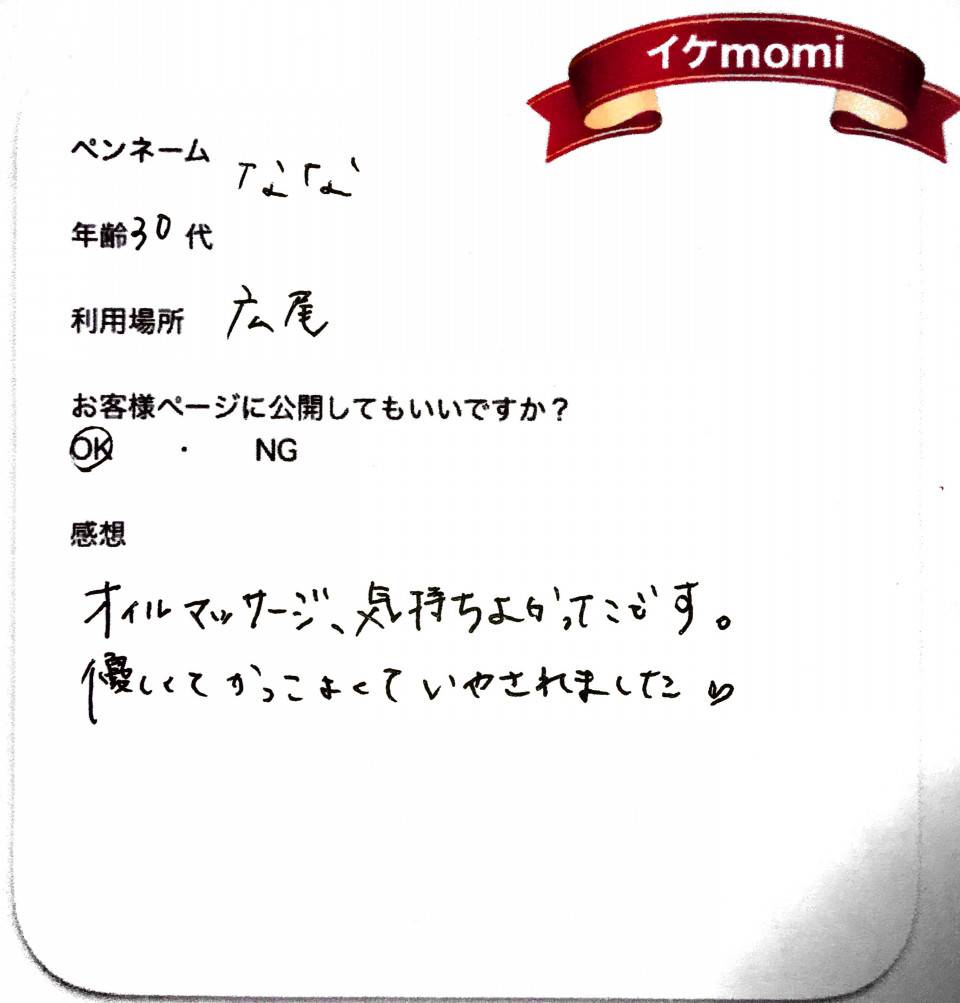 イケmomi
ペンネーム なな
年齢30代
利用場所 広尾
お客様ページに公開してもいいですか？
OK ・ NG
感想
オイルマッサージ、気持ちよかったです。
優しくてかっこよくていやされました♡